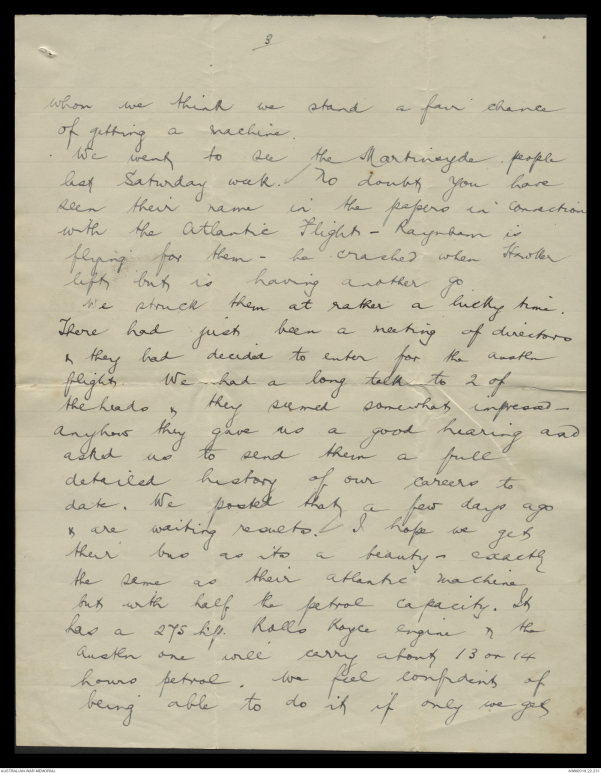 3
whom we think we stand a fair chance
of getting a machine.
We went to see the Martinsyde people
last Saturday week. No doubt you have
seen their name in the papers in connection
with the Atlantic Flight - Raynham is
flying for them - he crashed when Hawker
left but is having another go
We struck them at rather a lucky time.
There had just been a meeting of directors
& they had decided to enter for the Austln
flight. We had a long talk to 2 of
the heads & they seemed somewhat impressed -
anyhow they gave us a good hearing and
asked us to send them a full
detailed history of our careers to
date. We posted that a few days ago
& are waiting results. I hope we get
their bus as its a beauty - exactly
the same as their Atlantic machine
but with half the petrol capacity. It
has a 275 h.p. Rolls Royce engine & the
Austln one will carry about 13 or 14
hours petrol. We feel confident of
being able to do it if only we get
AUSTRALIAN WAR MEMORIAL